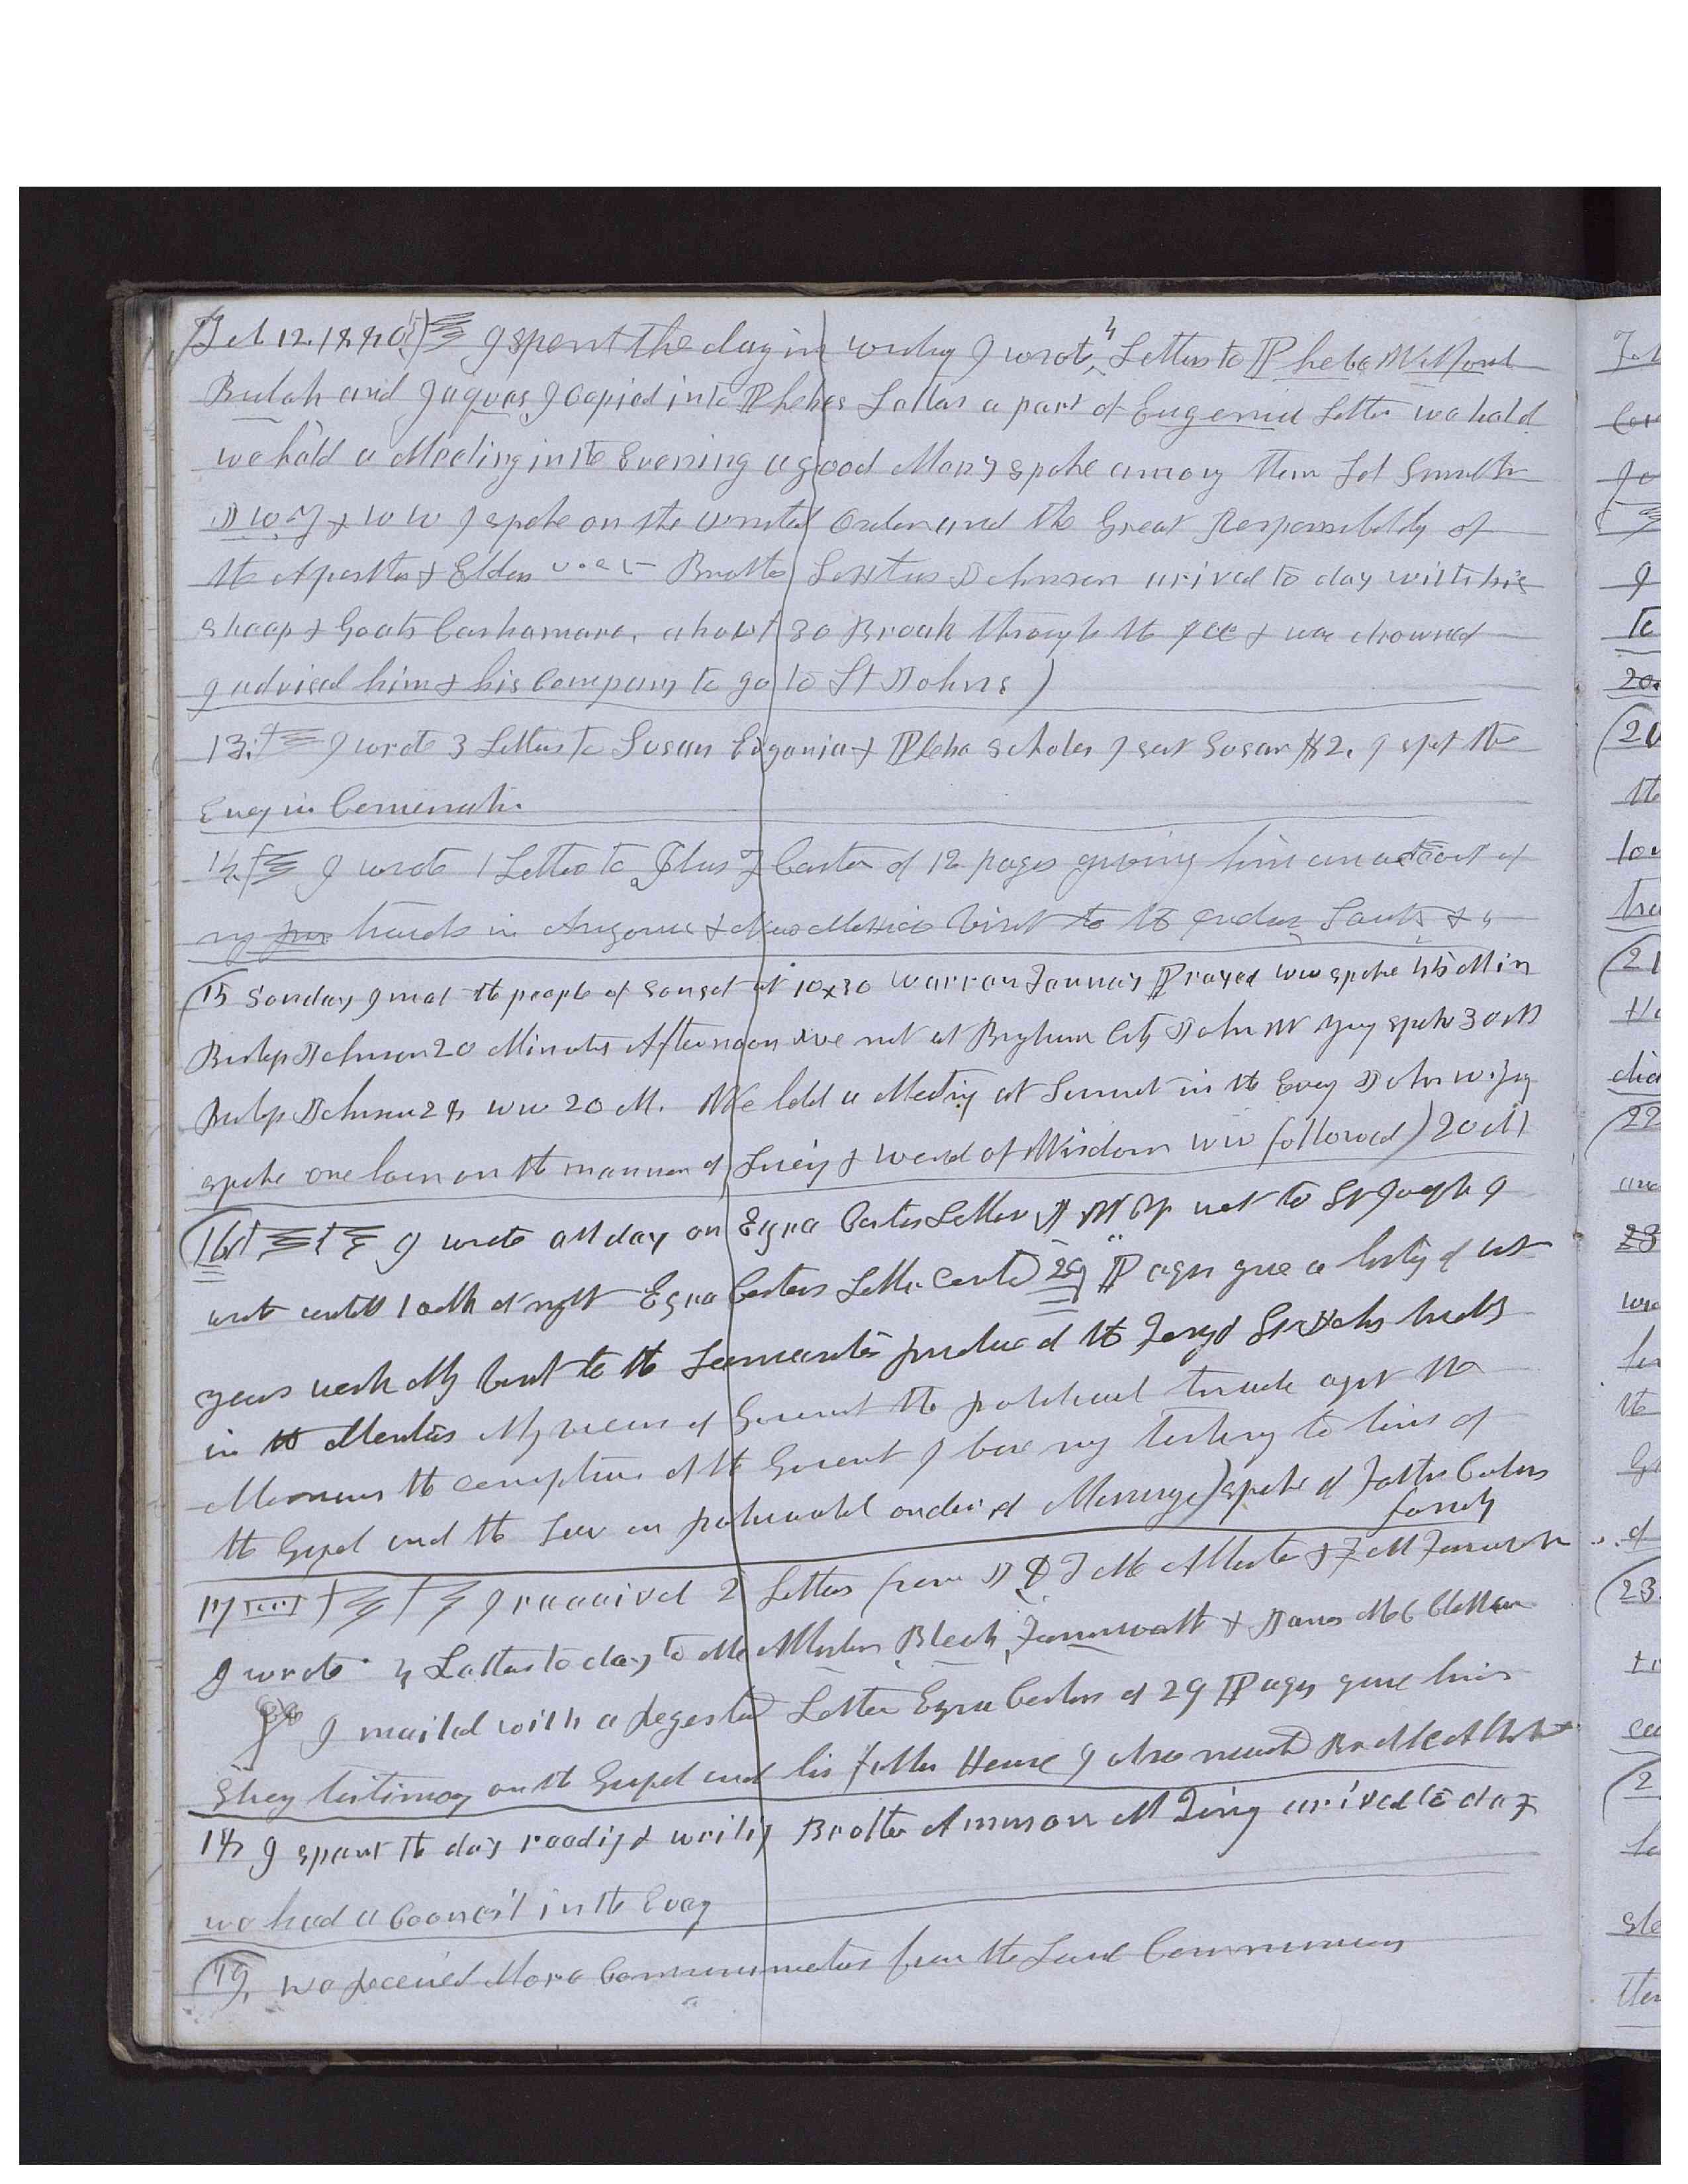 Feb 12. 1880 I spent the day in writing I wrote 4 Letters to Phebe Wilford
Bulah and Jaques I Copied into Phebes Letter a part of Eugenia Letter we held
we held a Meeting in the Evening a good Many spoke among them Lot Smith
J W Y & W W I spoke on the United Order and the Great Responsibility of
the Apostles & Elders Brother Sextus Johnson arived to day with his
sheep & Goats Cashamare, about 30 Broak through the Ice & was drowned
I advised him & his Company to go to St Johns)
13. I wrote 3 Letters to Susan Eugania & Phebe Scholes I sent Susan $2. I spet the
Eveg in
14. I wrote 1 Letter to F Carter of 12 pages giving him an account of
my travels in Arizona & New Mexico Visit to the Indian &
(15 Sunday I met the people of Sunset at 10x30 Warran Prayed WW spoke 45 Min
Bishop Johnson 20 Minutes Afternoon we met at Brigham City John W Yug spoke 30 M
Bishop Johnson 28 WW 20 M. We held a Meetig at Sunset in the Eveg John W. Yug
spoke one hour on the manner of & Word of Wisdom WW followed) 20 M
(16 I wrote all day on Ezra Carters Letter J W Y went to St Joseph I
wrote untill 10 clk at night Ezra Carters Letter 29 Pages give a histy of
years work My visit to the Lamanites produce of the
in the My views of Goverment the political against the
Mormons the coruptions of the Goverment I bore my testimony to him of
the Gospel and the Law on patriarchal order of Marriage) spoke of Father Carters
family
17 I raceived 2 Letters from &
I wrote 4 Letters to day to McAllister Bleak & James McClellan
I mailed with a Registed Letter Ezra Carters of 29 Pages gave him
Strog testimoy on the Gospel and his father House I also
18 I spent the day reading & writig Brother Ammon M Teney arived to day
we had a Council in the Eveg
(19, We received More Communications from the